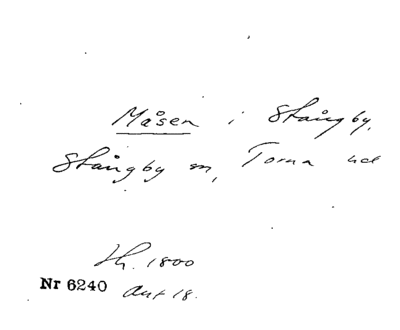 Måsen i Stångby,
Stångby sn, Torna hd
Lh. 1800
Nr 6240 Ant 18.